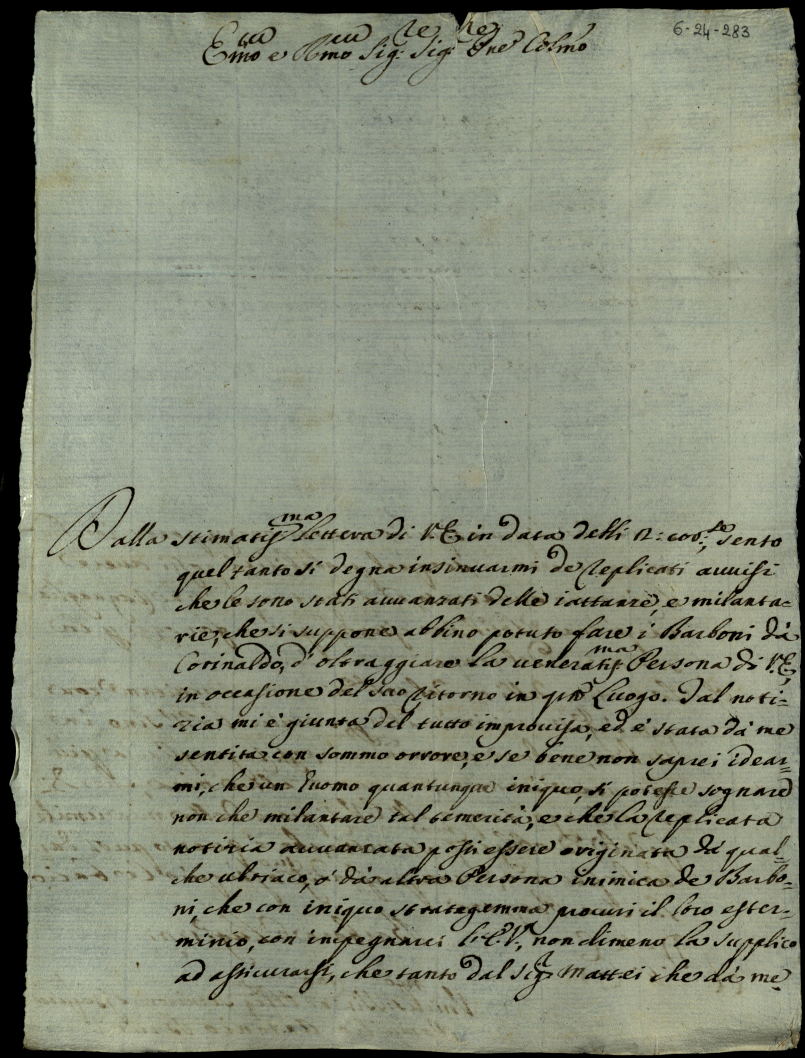 6-24-283
Emo e Rmo Sig.re Sig.re Pne Colmo
Dalla stimatissma Lettera di V.E. in data delli 12: cor.te, sento
quel tanto si degna insinuarmi de replicati avvisi
che le sono stati avvanzati delle iattanze, e milanta-
rie, che si suppone abbino potuto fare i Barboni dà
Corinaldo, d'oltraggiare la veneratissma Persona di V.E.
in occasione del suo ritorno in qto Luogo. Tal noti-
zia mi è giunta del tutto improvisa, ed è stata dà me
sentita con sommo orrore, e se bene non saprei idear-
mi, che un Uomo quantunque iniquo, si potesse sognare
non che milantare tal temerità, e che la replicata
notizia avvanzata possi essere originata dà qual-
che ubriaco, ò dà altra Persona inimica de Barbo-
ni, che con iniquo strategemma procuri il loro ester-
minio, con impegnarci l'E.V., non dimeno la supplico
ad assicurarsi, che tanto dal Sigr Mattei che dà me